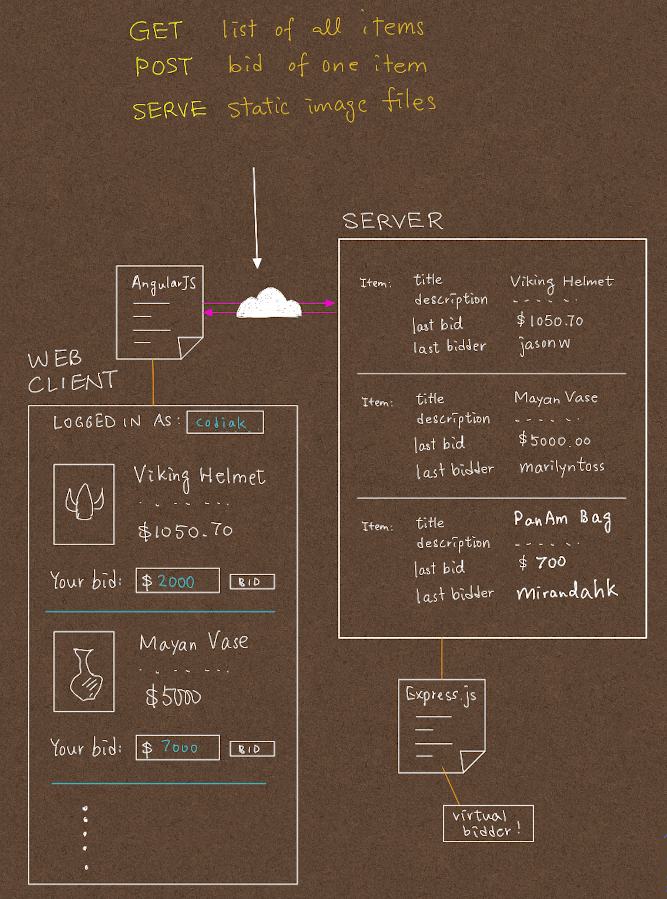 GET list of all items
POST bid of one item
SERVE static image files
SERVER
AngularJS
WEB
CLIENT
LOGGED IN AS: codiak
Viking Helmet
- - - - - -
$1050.70
Your bid: $ 2000 BID
Mayan Vase
- - - - - -
$5000
Your bid: $ 7000 BID
Item: title Viking Helmet
description - - - - - -
last bid $1050.70
last bidder jasonw
Item: title Mayan Vase
description - - - - - -
last bid $5000.00
last bidder marilyntoss
Item: title PanAm Bag
description - - - - - -
last bid $ 700
last bidder mirandahk
Express.js
virtual
bidder!